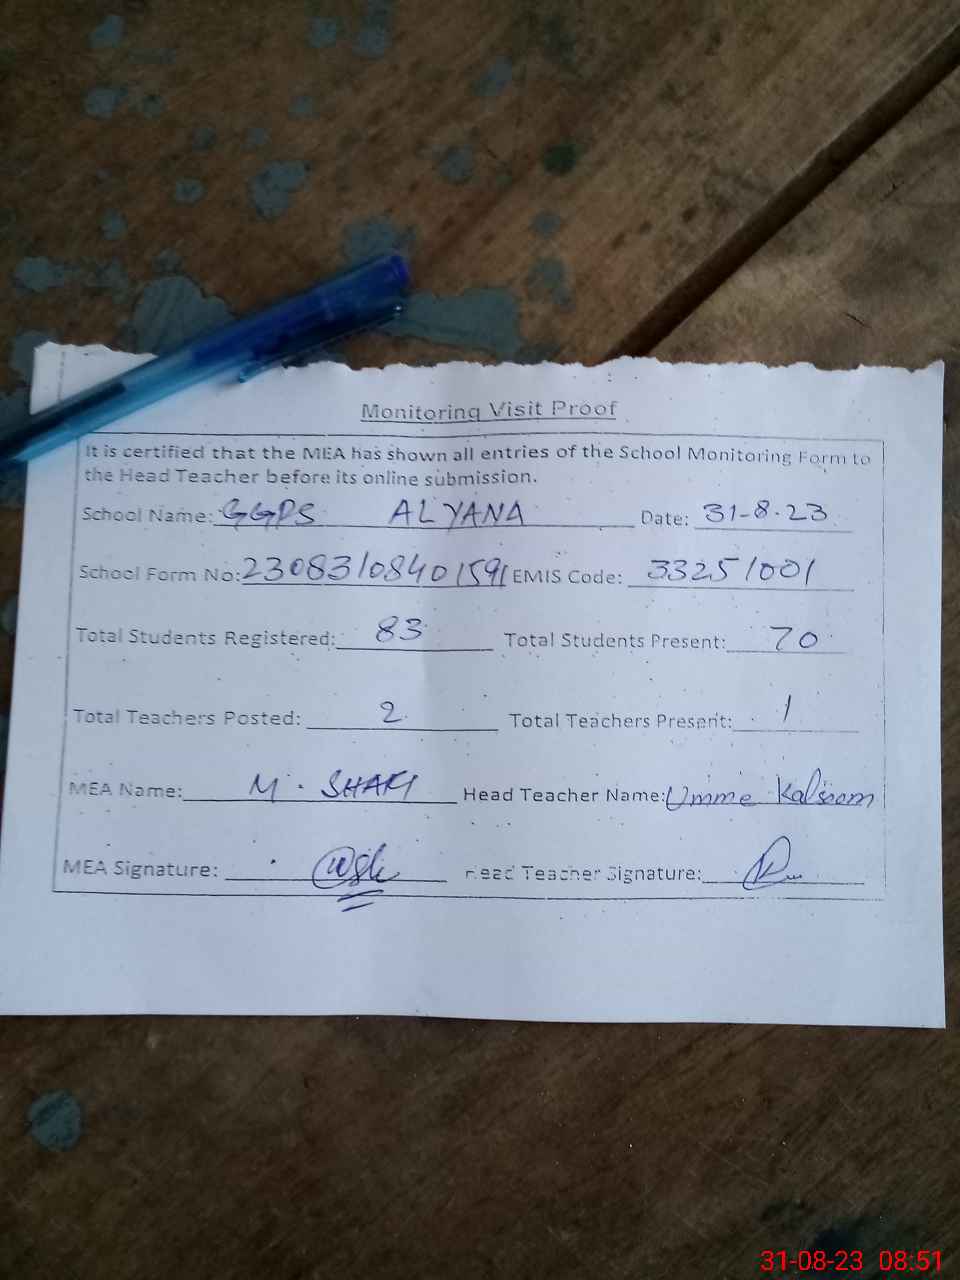 Monitoring Visit Proof
It is certified that the MEA has shown all entries of the School Monitoring Form to
the Head Teacher before its online submission.
School Name: GGPS ALYANA Date: 31-8-23
School Form No: 23083108401591 EMIS Code: 33251001
Total Students Registered: 83 Total Students Present: 70
Total Teachers Posted: 2 Total Teachers Present: 1
MEA Name: M. SHAFI Head Teacher Name: Umme Kalsoom
MEA Signature: Head Teacher Signature:
31-08-23 08:51